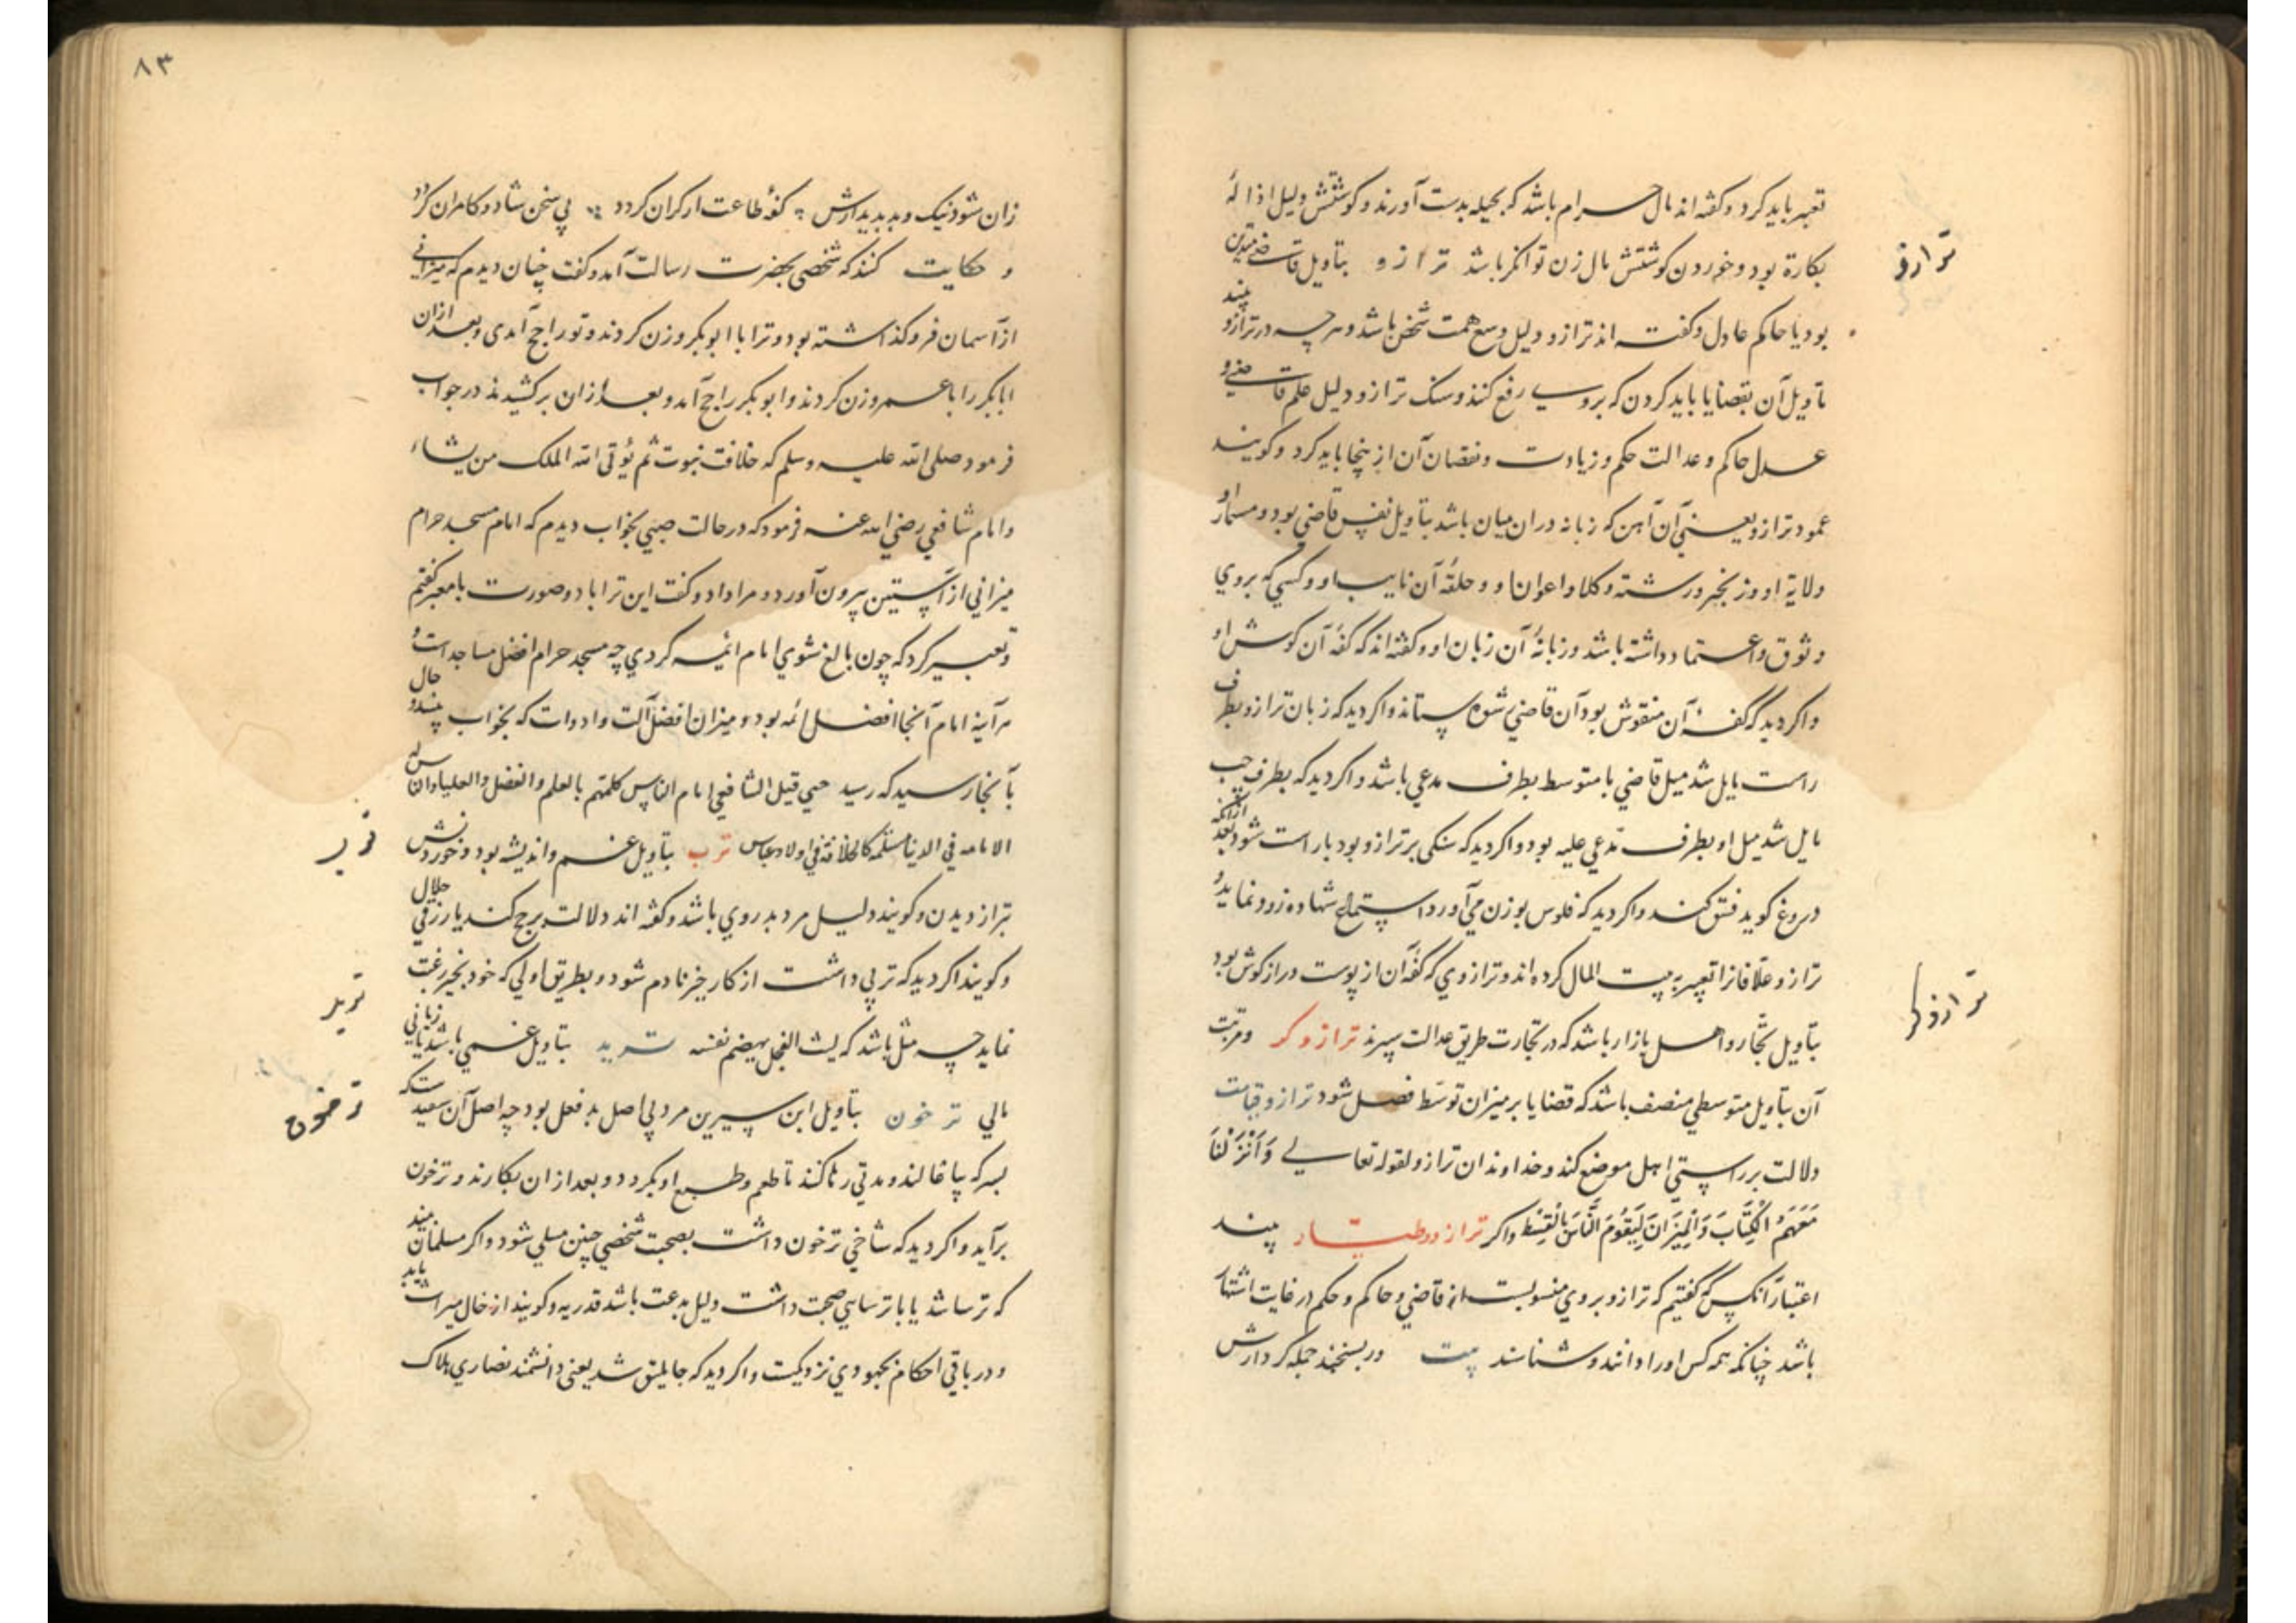 تعبیر باید کرد و گفته اند مال حرام باشد که بحیله بدست آورند و کوشتش دلیل ازالهٔ
بکارة بود و خوردن کوشتش مال زن توانکر باشد ترازو بتاویل قاضی متدین
ترازو
بود یا حاکم عادل و گفته اند ترازو دلیل وسع همت شخص باشد و هرچه در ترازو بیند
تاویل آن بقضایا باید کردن که بروی رفع کنند و سنک ترازو دلیل علم قاضی و
عدل حاکم و عدالت حکم و زیادت و نقصان آن از ینجا باید کرد و کویند
عمود ترازو یعنی آن آهن که زبانه در ان میان باشد بتاویل نفس قاضی بود و مسمار او
ولایة او و زنجیر و رشته وکلا و اعوان او و حلقه آن نایب او و کسی که بروی
وثوق و اعتماد داشته باشد و زبانهٔ آن زبان او و گفته اند که کفهٔ آن کوش او
واکر دید که کفهٔ آن منقوش بود آن قاضی رشوه ستاند واکر دید که زبان ترازو بطرف
راست مایل شد میل قاضی یا متوسط بطرف مدعی باشد واکر دید که بطرف چپ
مایل شد میل او بطرف مدعی علیه بود واکر دید که سنکی بر ترازو بود بار است شود بعد ازانکه
دروغ کوید فسق کند واکر دید که فلوس بوزن می آورد استماع شهاده زور نماید و
ترازو علافانرا تعبیر به بیت المال کرده اند و ترازوی که کفهٔ آن از پوست دراز کوش بود
بتاویل تجار و اهل بازار باشد که در تجارت طریق عدالت سپرند ترازوکر و مرتبت
ترازوکر
آن بتاویل متوسطی منصف باشد که قضایا بر میزان توسط فصل شود ترازو قیامت
دلالت بر راستی اهل موضع کند و خداوندان ترازو لقوله تعالی وَاَنْزَلْنَا
مَعَهُمُ الْکِتَابَ وَالْمِیزَانَ لِیَقُومَ النَّاسُ بِالْقِسْطِ واکر ترازو و طیار بیند
اعتبار آنکس که کفتیم که ترازو بروی منسوبست از قاضی و حاکم و حکم در غایت اشتهار
باشد چنانکه همه کس اورا دانند و شناسند بیت ور بسنجند جمله کردارش
۸۳
زان شود نیک و بد بدیدارش کفهٔ طاعت ار کران کردد بی سخن شاد و کامران کردد
و حکایت کنند که شخصی بحضرت رسالت آمد و کفت چنان دیدم که میزانی
از آسمان فرو کذاشته بود و ترا با ابوبکر وزن کردند و تو راجح آمدی و بعد ازان
ابابکر را با عمر وزن کردند و ابوبکر راجح آمد و بعد ازان برکشیدند در جواب
فرمود صلی الله علیه وسلم که خلافت نبوت ثم یؤتی الله الملک من یشاء
و امام شافعی رضی الله عنه فرمود که در حالت صبی بخواب دیدم که امام مسجد حرام
میزانی از آستین بیرون آورد و مرا داد و کفت این ترا باد و صورت با معبر کفتم
و تعبیر کرد که چون بالغ شوی امام ائمه کردی چه مسجد حرام افضل مساجد است و
هر آینه امام آنجا افضل ائمه بود و میزان افضل آلت و ادوات که بخواب بیند و حال
بآنجا رسید که رسید حتی قیل الشافعی امام الناس کلهم بالعلم والفضل والعلیا وان له
الامامه فی الدنیا مسلمة کالخلافة فی اولاد عباس ترب بتاویل غم و اندیشه بود و خوردنش
ترب
بتر از دیدن و کویند دلیل مرد بد روی باشد و گفته اند دلالت بر حج کند یا رزقی حلال
و کویند اکر دید که تربی داشت از کار خیر نادم شود و بطریق اولی که خود بخیر رغبت
نماید چه مثل باشد که لیت الفجل یهضم نفسه ترید بتاویل غمی باشد یا زیانی
ترید
مالی ترخون بتاویل ابن سیرین مرد بی اصل بد فعل بود چه اصل آن سفید
ترخون
بسرکه بیاغالند و مدتی رها کنند تا طعم و طبع او بکردد و بعد ازان بکارند و ترخون
برآید واکر دید که شاخی ترخون داشت بصحبت شخصی چنین مبتلی شود واکر مسلمان بیند
که ترسا شد یا با ترسایی صحبت داشت دلیل بدعت باشد قدریه و کویند از خال میراث یابد
و در باقی احکام بجهودی نزدیکست واکر دید که جاثلیق شد یعنی دانشمند نصاری هلاک